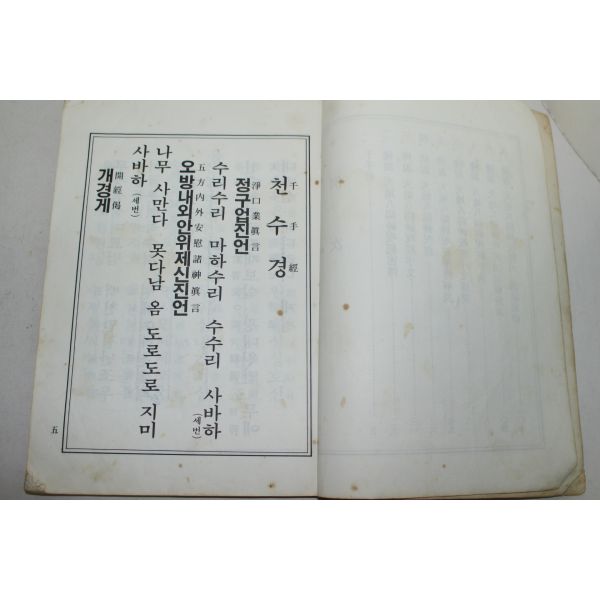 천수경
千手經
정구업진언
淨口業眞言
수리수리 마하수리 수수리 사바하 (세번)
오방내외안위제신진언
五方內外安慰諸神眞言
나무 사만다 못다남 옴 도로도로 지미
사바하 (세번)
개경게
開經偈
五